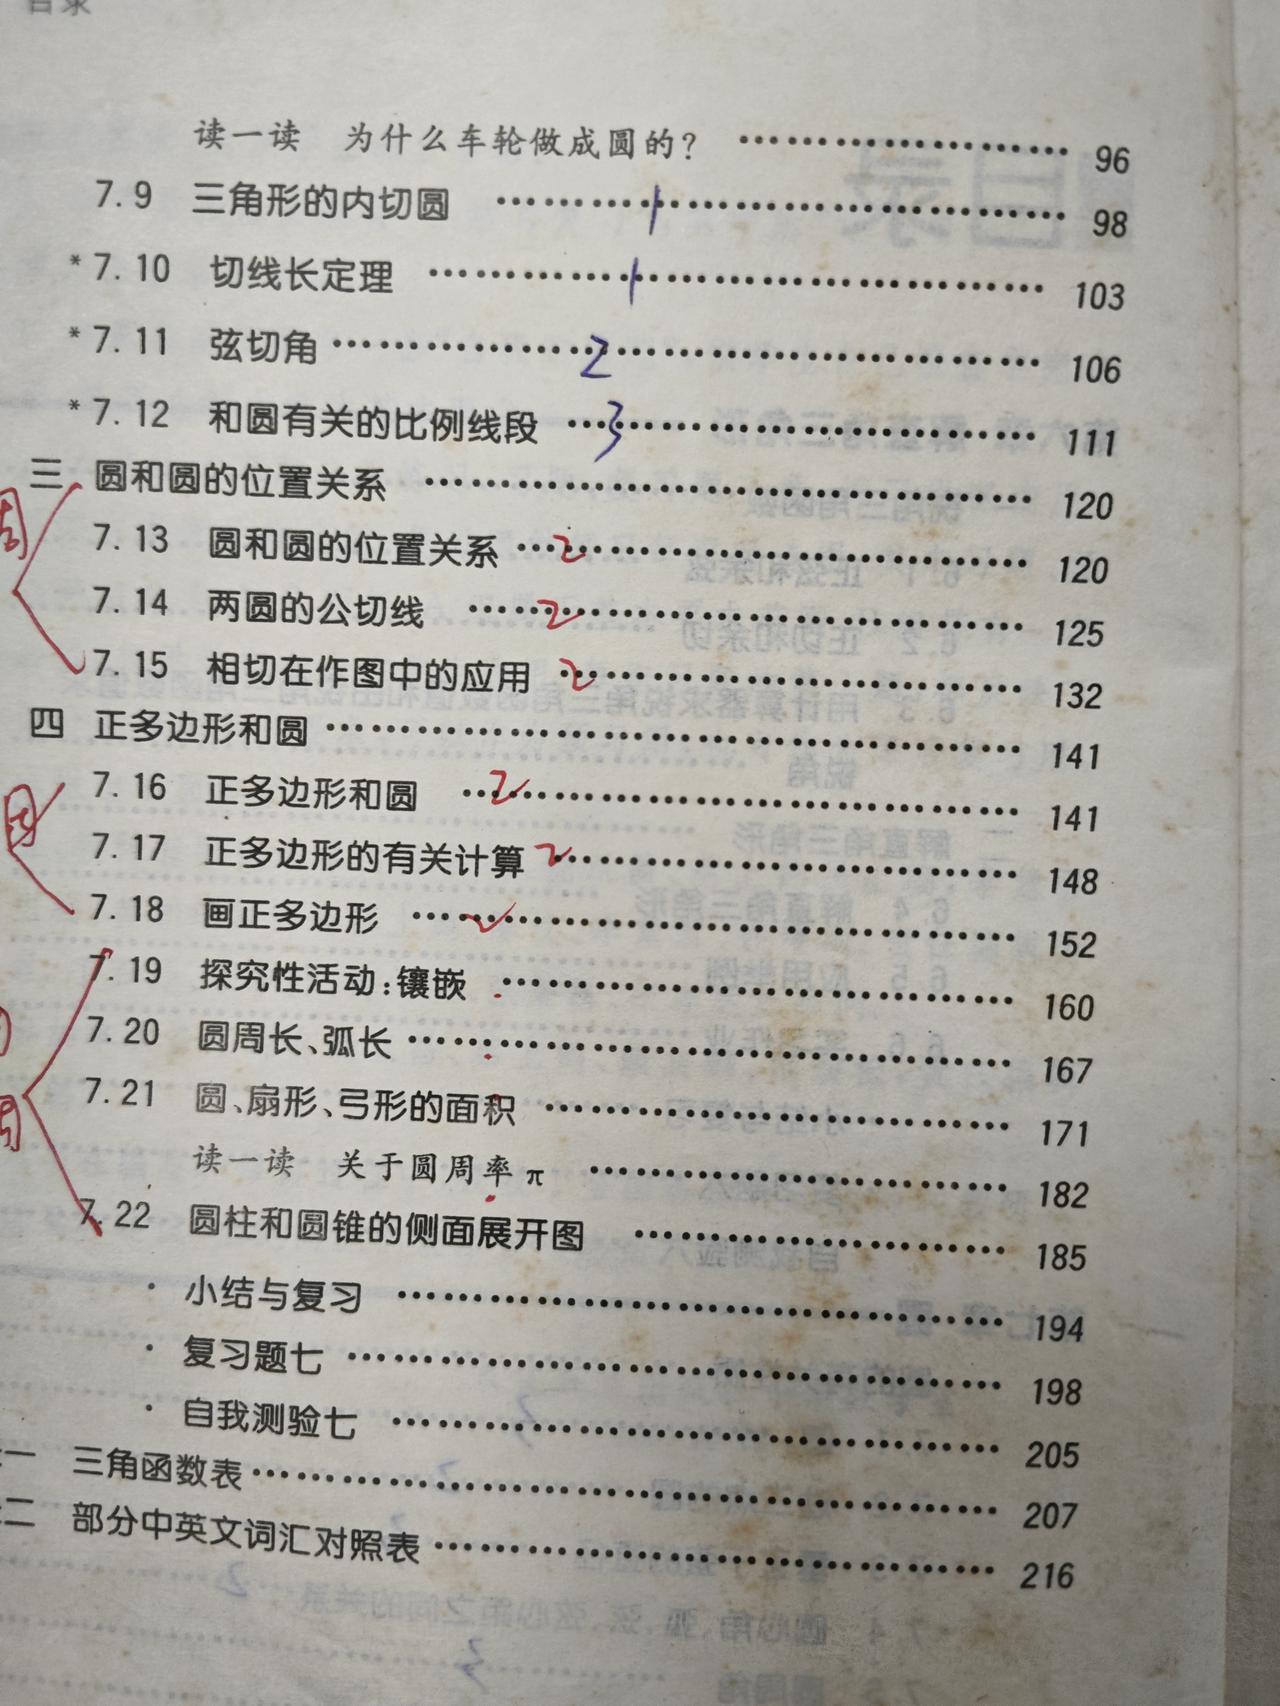 目录
读一读 为什么车轮做成圆的? 96
7.9 三角形的内切圆 1 98
*7.10 切线长定理 1 103
*7.11 弦切角 2 106
*7.12 和圆有关的比例线段 3 111
三 圆和圆的位置关系 120
7.13 圆和圆的位置关系 2 120
7.14 两圆的公切线 2 125
7.15 相切在作图中的应用 2 132
四 正多边形和圆 141
7.16 正多边形和圆 2 141
7.17 正多边形的有关计算 2 148
7.18 画正多边形 152
7.19 探究性活动:镶嵌 160
7.20 圆周长、弧长 167
7.21 圆、扇形、弓形的面积 171
读一读 关于圆周率π 182
7.22 圆柱和圆锥的侧面展开图 185
· 小结与复习 194
· 复习题七 198
· 自我测验七 205
一 三角函数表 207
二 部分中英文词汇对照表 216